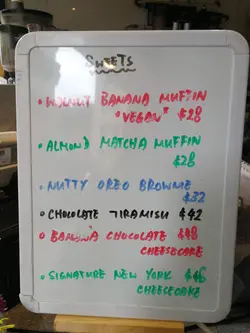 SWEETS
• WALNUT BANANA MUFFIN
"VEGAN" $28
• ALMOND MATCHA MUFFIN
$28
• NUTTY OREO BROWNIE
$32
• CHOCOLATE TIRAMISU $42
• BANANA CHOCOLATE $48
CHEESECAKE
• SIGNATURE NEW YORK $46
CHEESECAKE